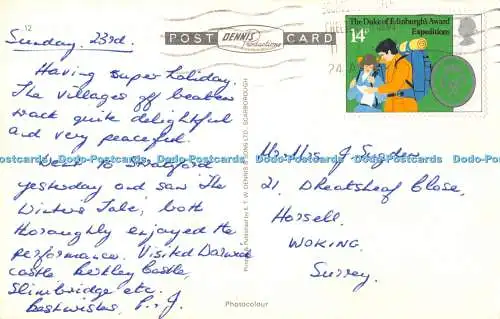 12
Sunday. 23rd.
Having super holiday.
The villages off beaten
track quite delightful
and very peaceful.
Went to Stratford
yesterday and saw 'The
Winter's Tale', both
thoroughly enjoyed the
performance. Visited
castle, Berkley Castle,
Slimbridge etc.
Best wishes, P. J.
POST DENNIS Productions CARD
Printed & Published by E. T. W. DENNIS & SONS LTD. SCARBOROUGH
Photocolour
The Duke of Edinburgh's Award
Expeditions
14P
24
Mr. Mrs J. Sugden
21, Close,
Horsell.
WOKING.
Surrey.
Dodo-Postcards Dodo-Postcards Dodo-Postcards Dodo-Postcards Dodo-Postcards